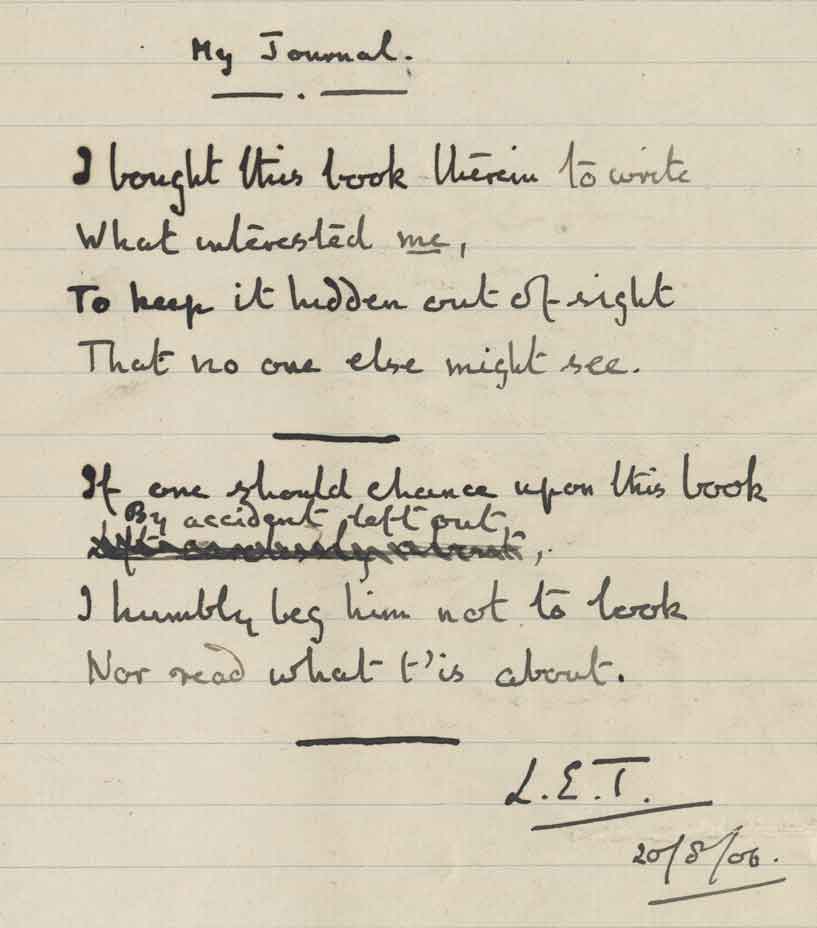 My Journal.
I bought this book therein to write
What interested me,
To keep it hidden out of sight
That no one else might see.
If one should chance upon this book
By accident left out,
I humbly beg him not to look
Nor read what t'is about.
L.E.T.
20/8/06.